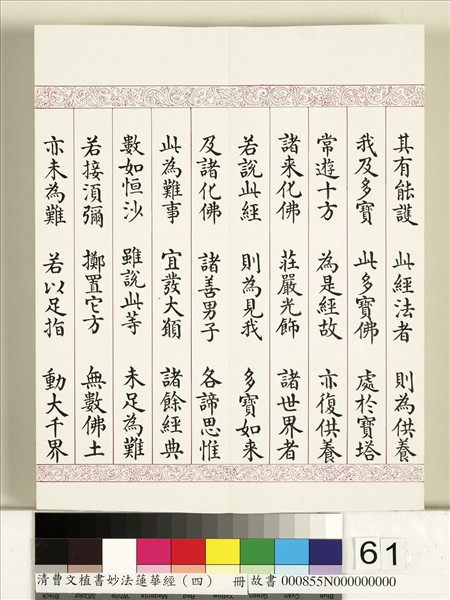 其有能護 此經法者 則為供養
我及多寶 此多寶佛 處於寶塔
常遊十方 為是經故 亦復供養
諸来化佛 莊嚴光飾 諸世界者
若說此經 則為見我 多寶如来
及諸化佛 諸善男子 各諦思惟
此為難事 宜發大願 諸餘經典
數如恒沙 雖說此等 未足為難
若接須彌 擲置它方 無數佛土
亦未為難 若以足指 動大千界
61
清曹文植書妙法蓮華經（四） 冊 故書 000855N000000000